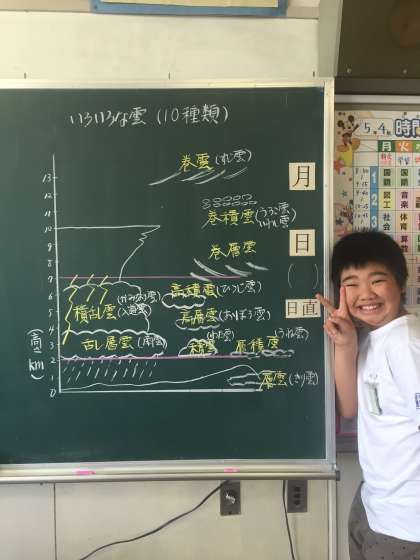 いろいろな雲(10種類)
13
12
11
10
9
8
7
6
5
4
3
2
1
0
(高さkm)
巻雲(丸雲)
巻積雲(うろこ雲
いわし雲)
巻層雲
高積雲(ひつじ雲)
積乱雲(かみなり雲)
(入道雲)
高層雲(おぼろ雲)
乱層雲(雨雲)
積雲(わた雲)
層積雲(うね雲)
層雲(きり雲)
月
日
( )
日直
5.4
時間
月
火
国語
図工
社会
算数
国語
国語
体育
算数